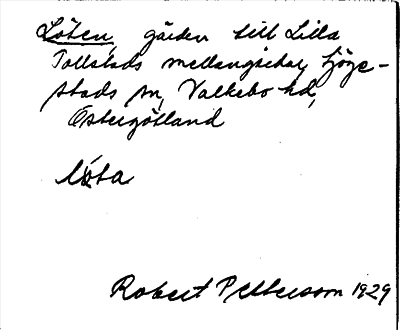 Löten, gärden till Lilla
Tollstads mellangårdar, Sjöge-
stads sn, Valkebo hd,
Östergötland
löta
Robert Petterson 1929